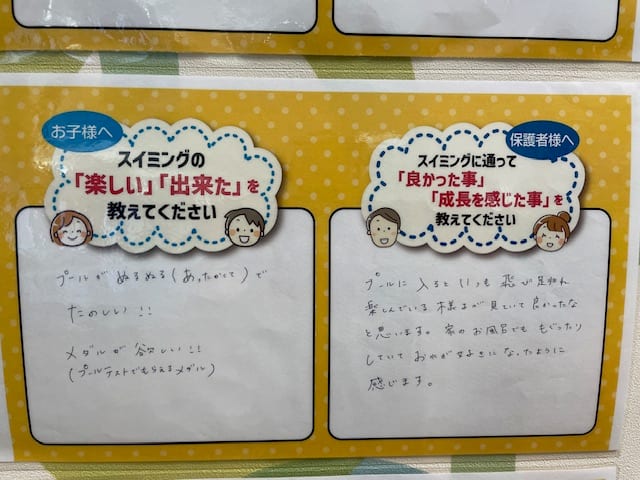 お子様へ
スイミングの
「楽しい」「出来た」を
教えてください
プールが ぬるぬる(あったかくて)で
たのしい!!
メダルが欲しい!!
(プールテストでもらえるメダル)
保護者様へ
スイミングに通って
「良かった事」
「成長を感じた事」を
教えてください
プールに 入ると いつも 飛び跳ね
楽しんでいる 様子が 見ていて 良かったな
と思います。家の お風呂でも もぐったり
していて お水が好きに なったように
感じます。